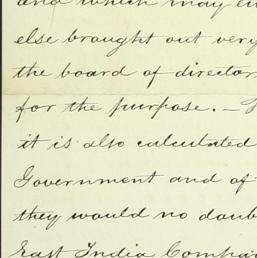 and which may en
else brought out very
the board of director
for the purpose. —
it is also calculated
Government and of
they would no doub
East India Compa